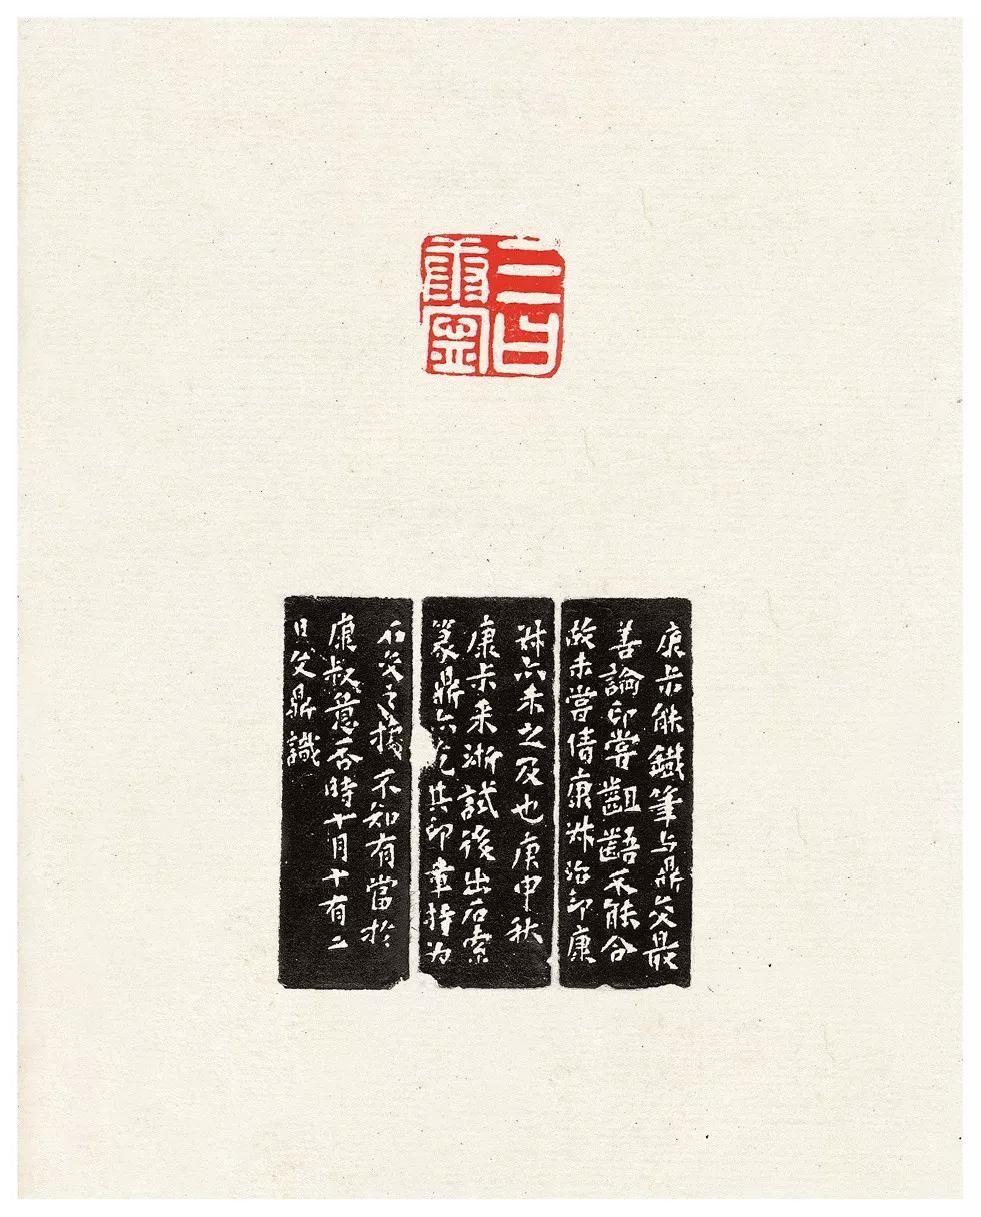 康尗能鐵筆与鼎交最
善論印嘗齟齬不能合
故未嘗倩康尗治印康
尗亦未之及也庚申秋
康尗来浙試後出石索
篆鼎亦乞其印章持为
石交之換不知有當於
康叔意否時十月十有二
日父鼎識